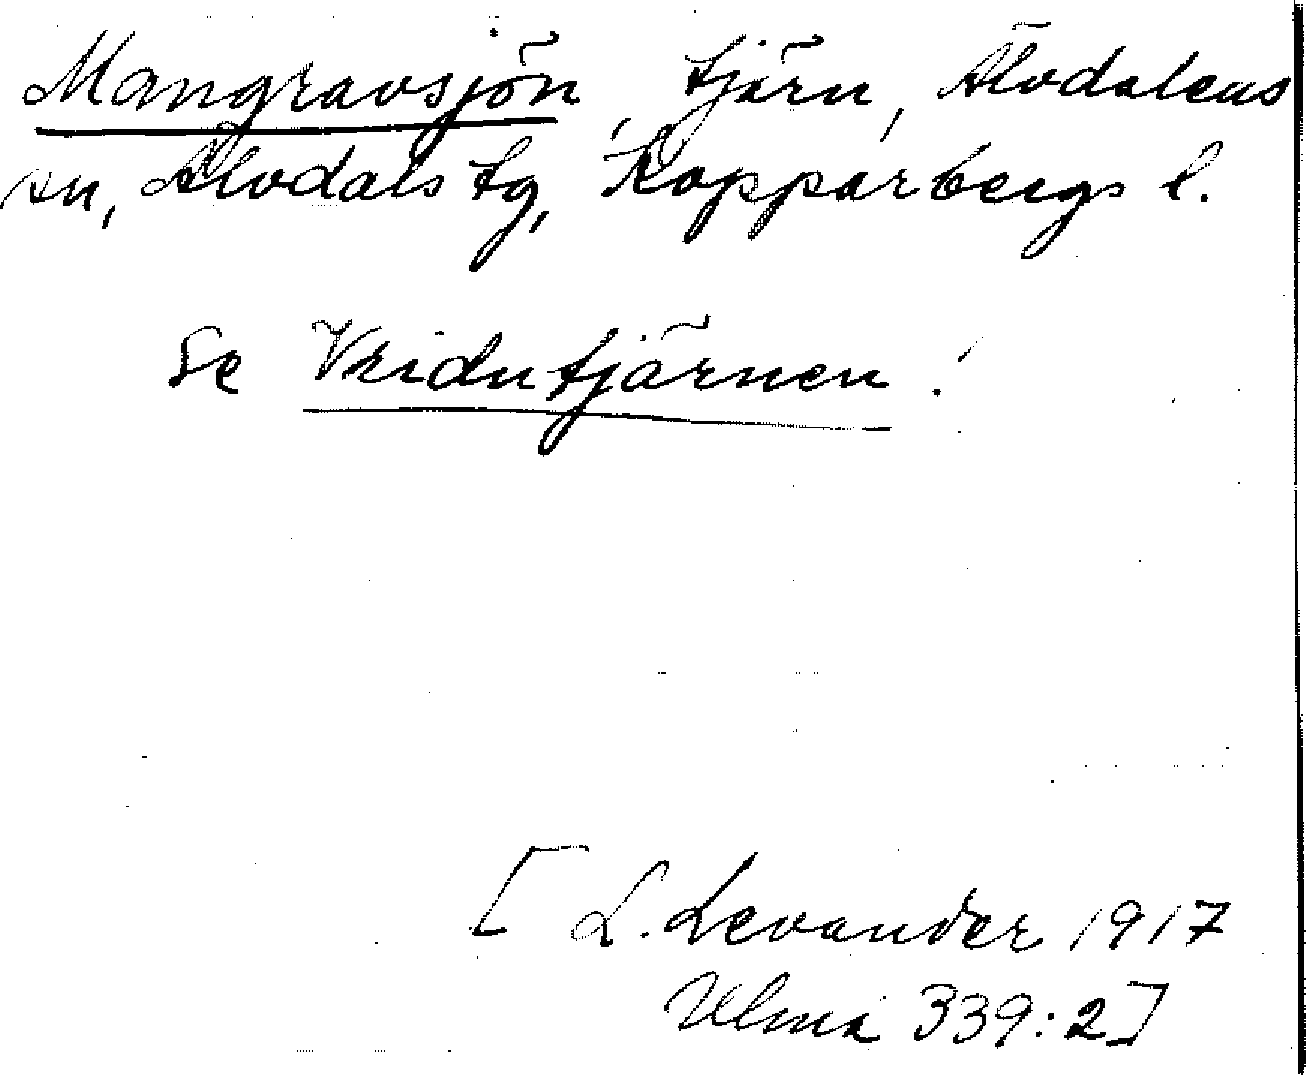 Mangravsjön, tjärn, Älvdalens
sn, Älvdals tg, Kopparbergs l.
Se Vridutjärnen!
[L. Levander 1917
Ulma 339:2]